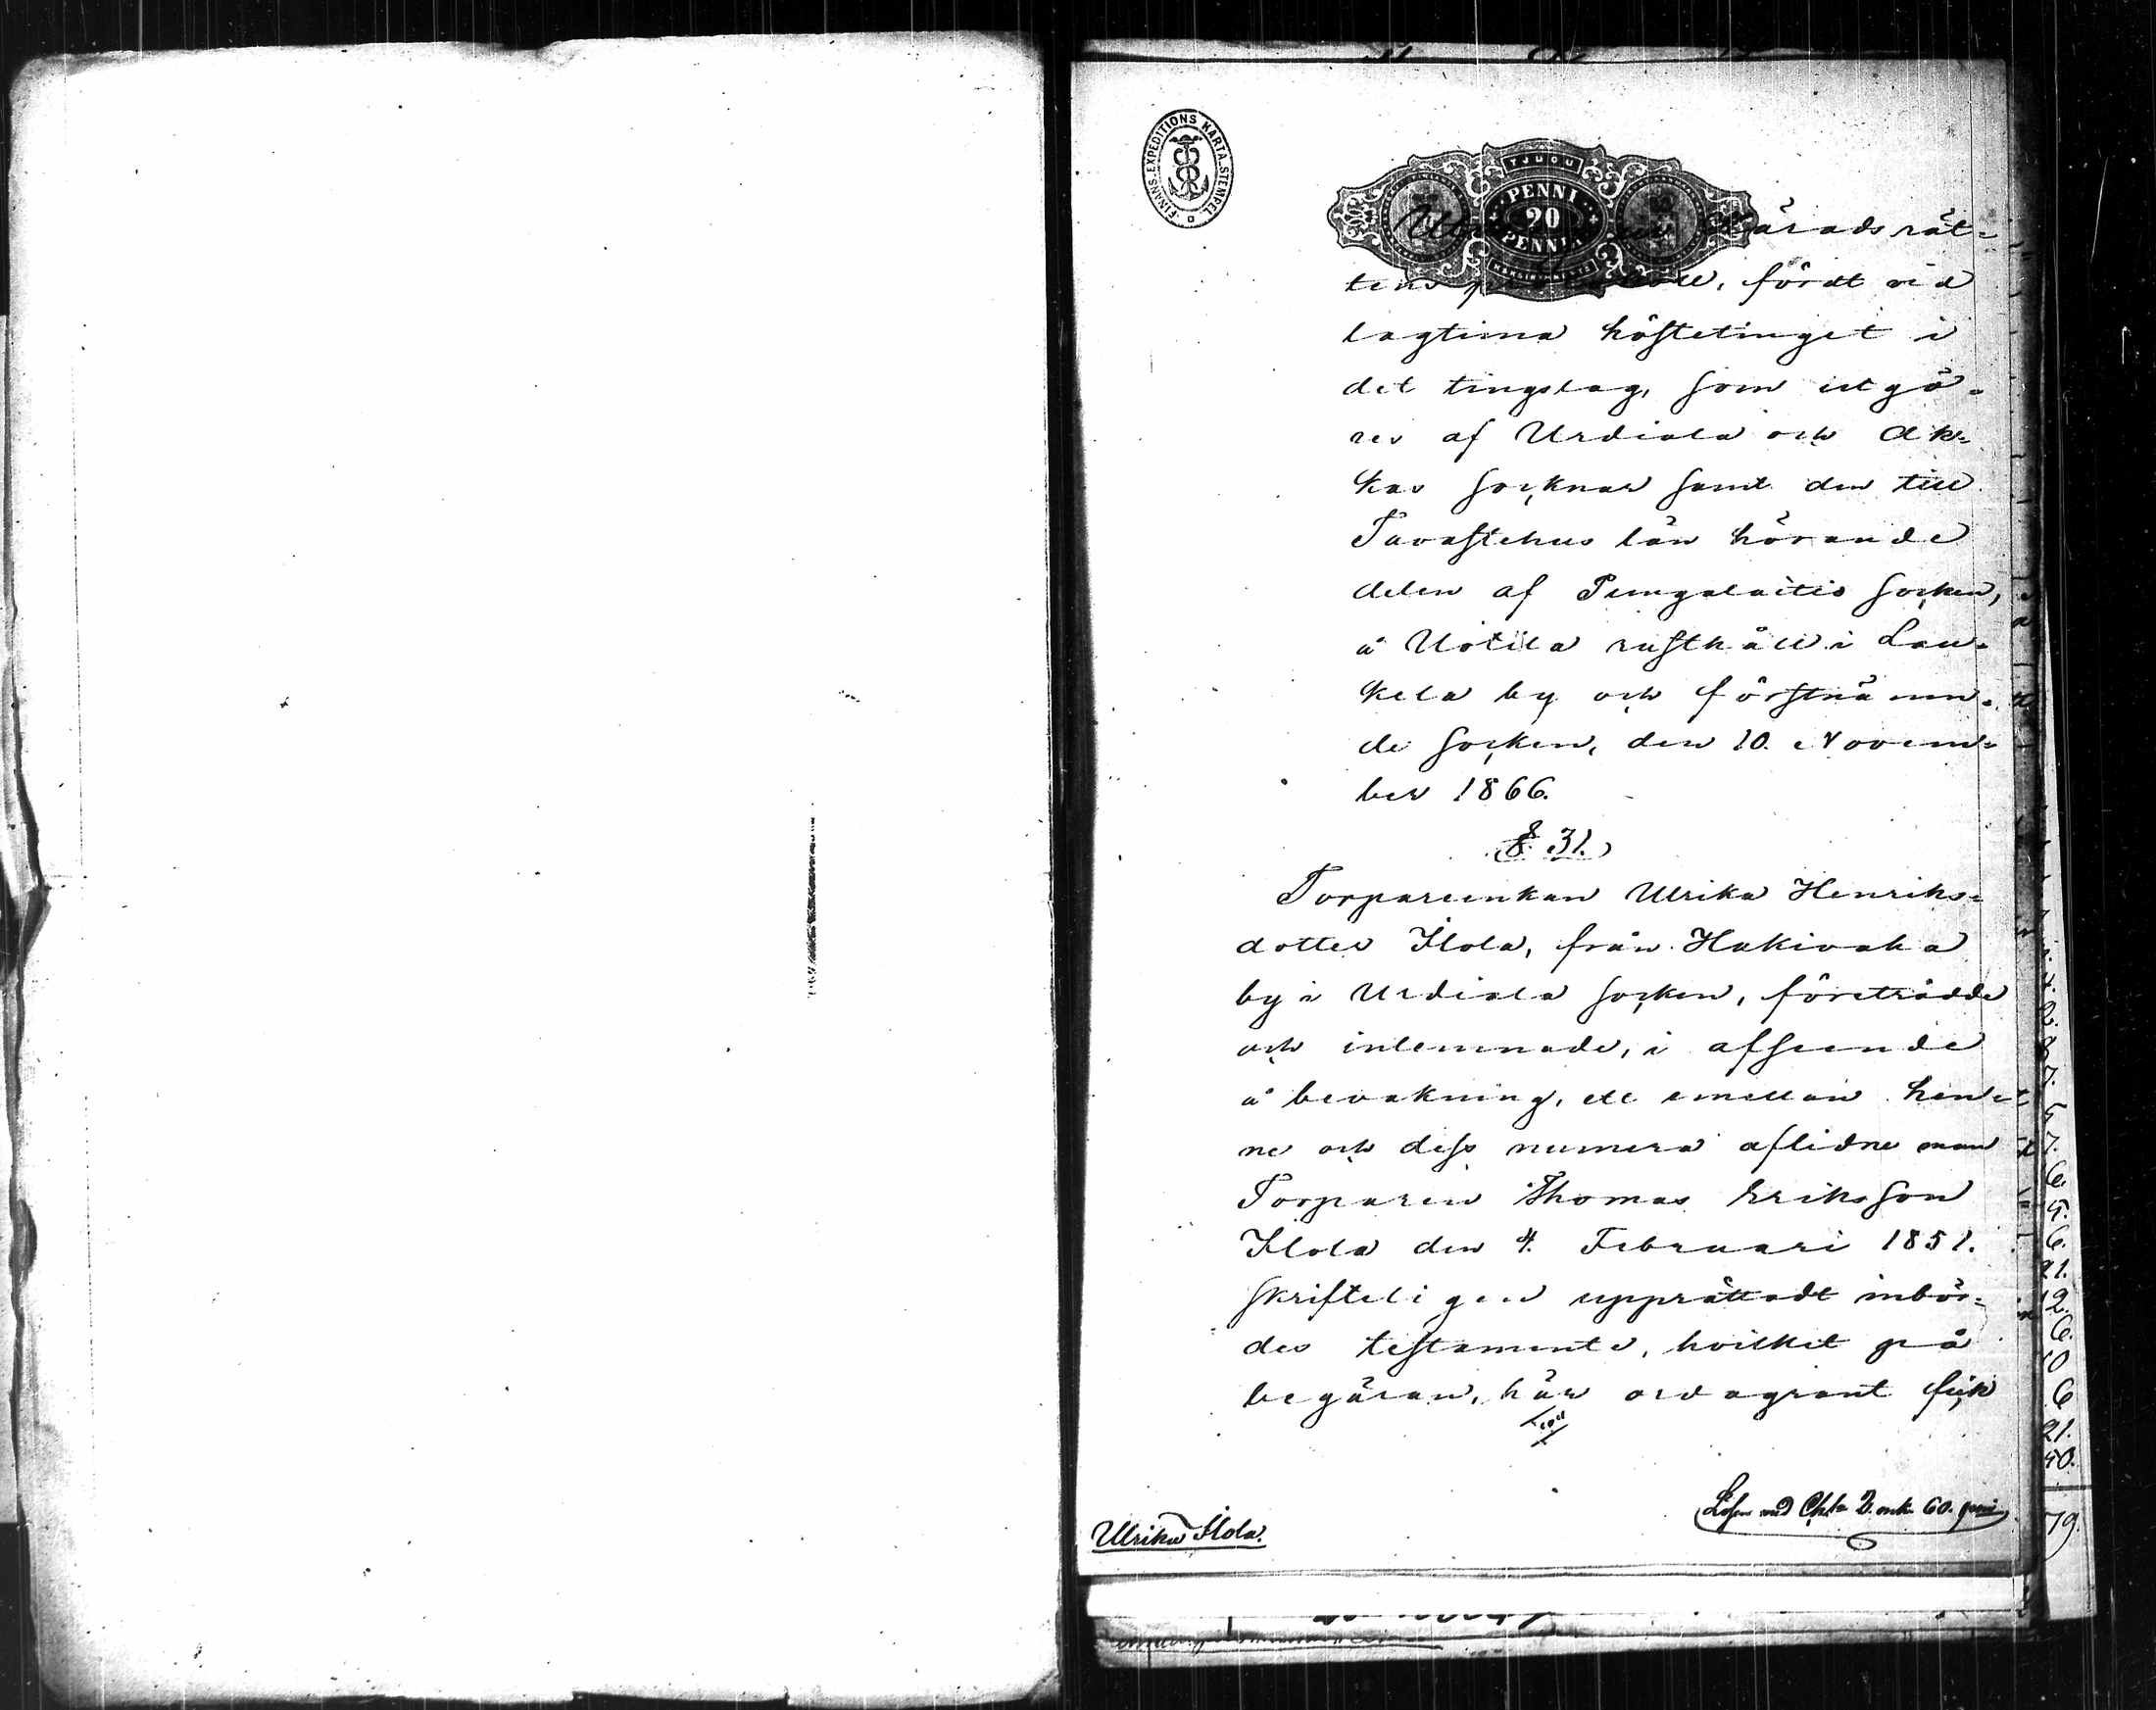 FINANS-EXPEDITIONS KARTA-STEMPEL
TJUGU
PENNI
20
PENNIÄ
Häradsrät=
tens protokoll, fördt vid
lagtima höstetinget i
det tingslag, som utgö=
res af Urdiala och Ak=
kas socknar samt den till
Tavastehus län hörande
delen af Pungalaitio socken,
å Uotila rusthåll i Lau=
kela by och förstnämn=
de socken, den 10. Novem=
ber 1866.
§ 31.
Torpareenkan Ulrika Henriks=
dotter Ilola, från Hakivaha
by i Urdiala socken, företrädde
och inlemnade, i afseende
å bevakning, ett emellan hen=
ne och dess numera aflidne man
Torparen Thomas Eriksson
Ilola den 4. Februari 1851.
skrifteligen upprättadt inbör=
des testamente, hvilket på
begäran, här ordagrant fick
Lösen med Ch:ta 2. mk 60. pni
Ulrika Ilola.